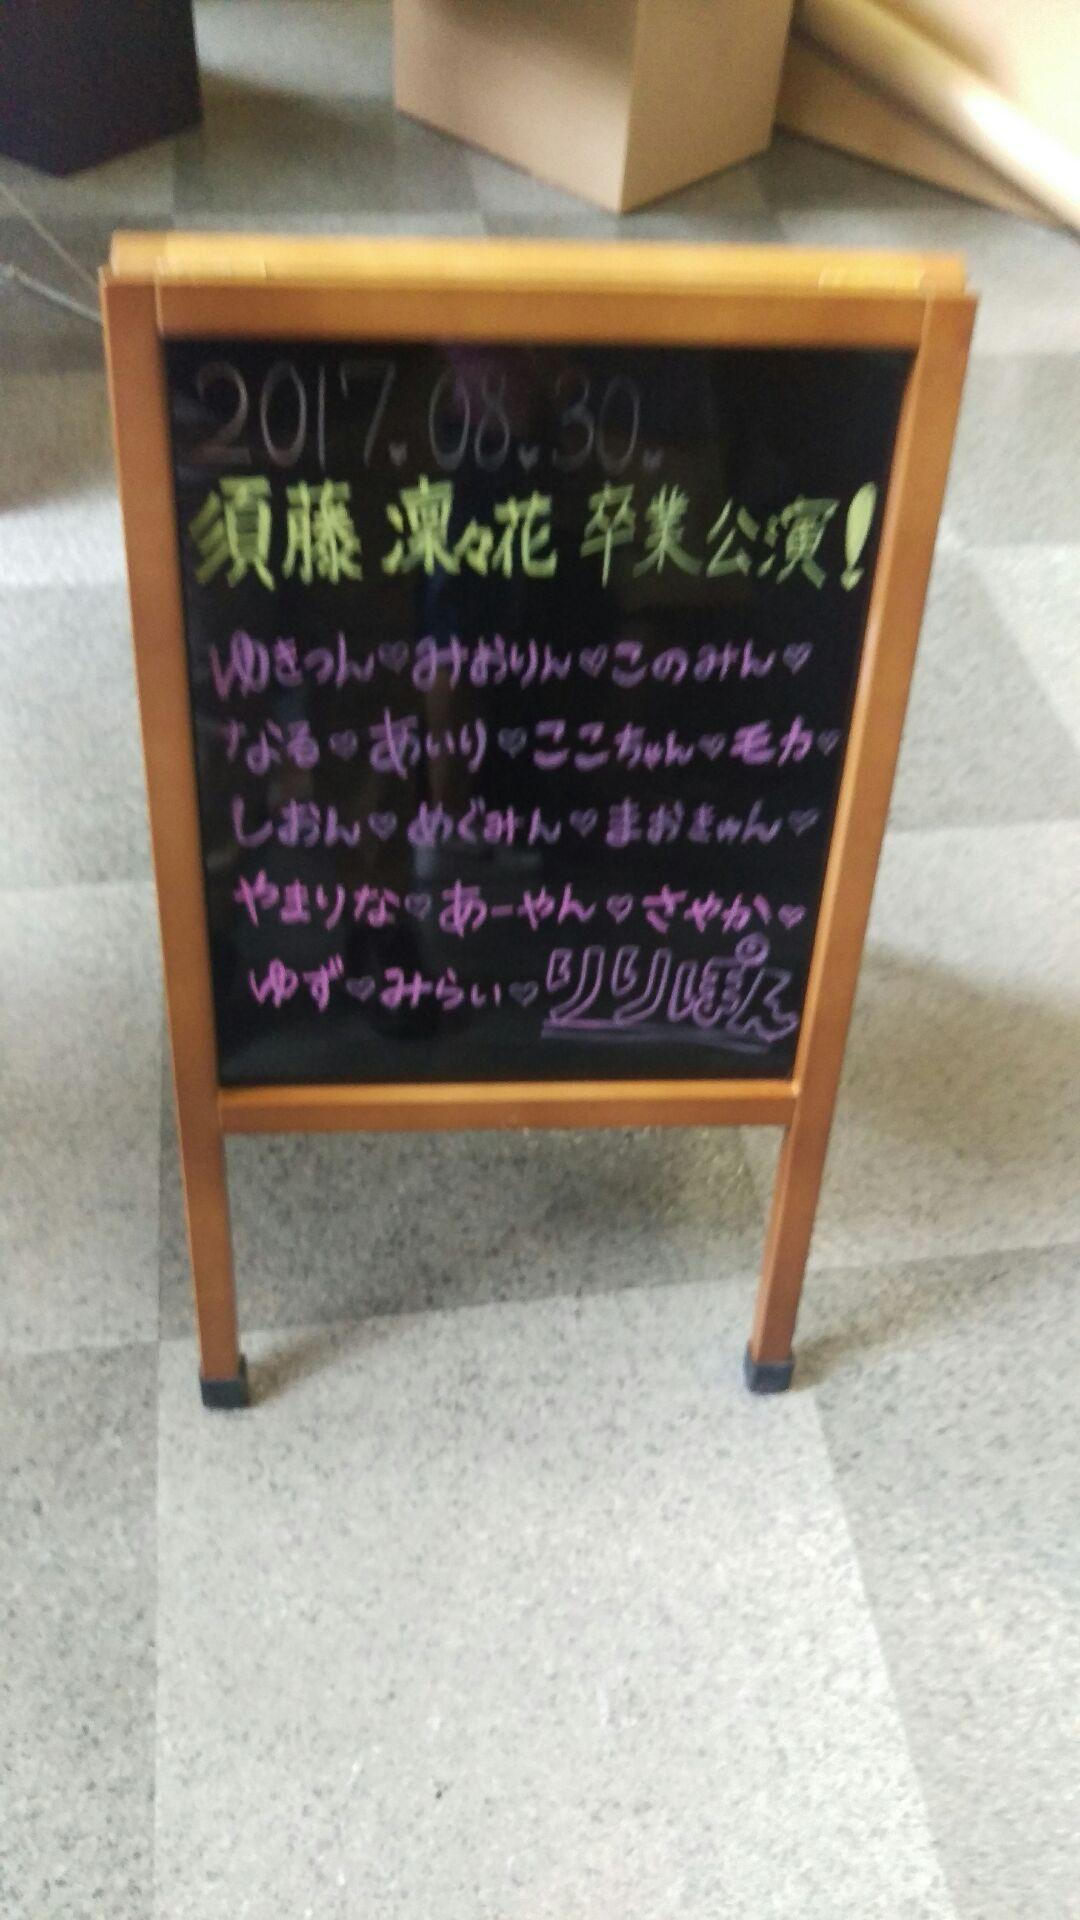 2017.08.30.
須藤 凜々花 卒業公演!
ゆきつん♡みおりん♡このみん♡
なる♡あいり♡ここちゅん♡モカ♡
しおん♡めぐみん♡まおきゅん♡
やまりな♡あーやん♡さやか♡
ゆず♡みらい♡りりぽん